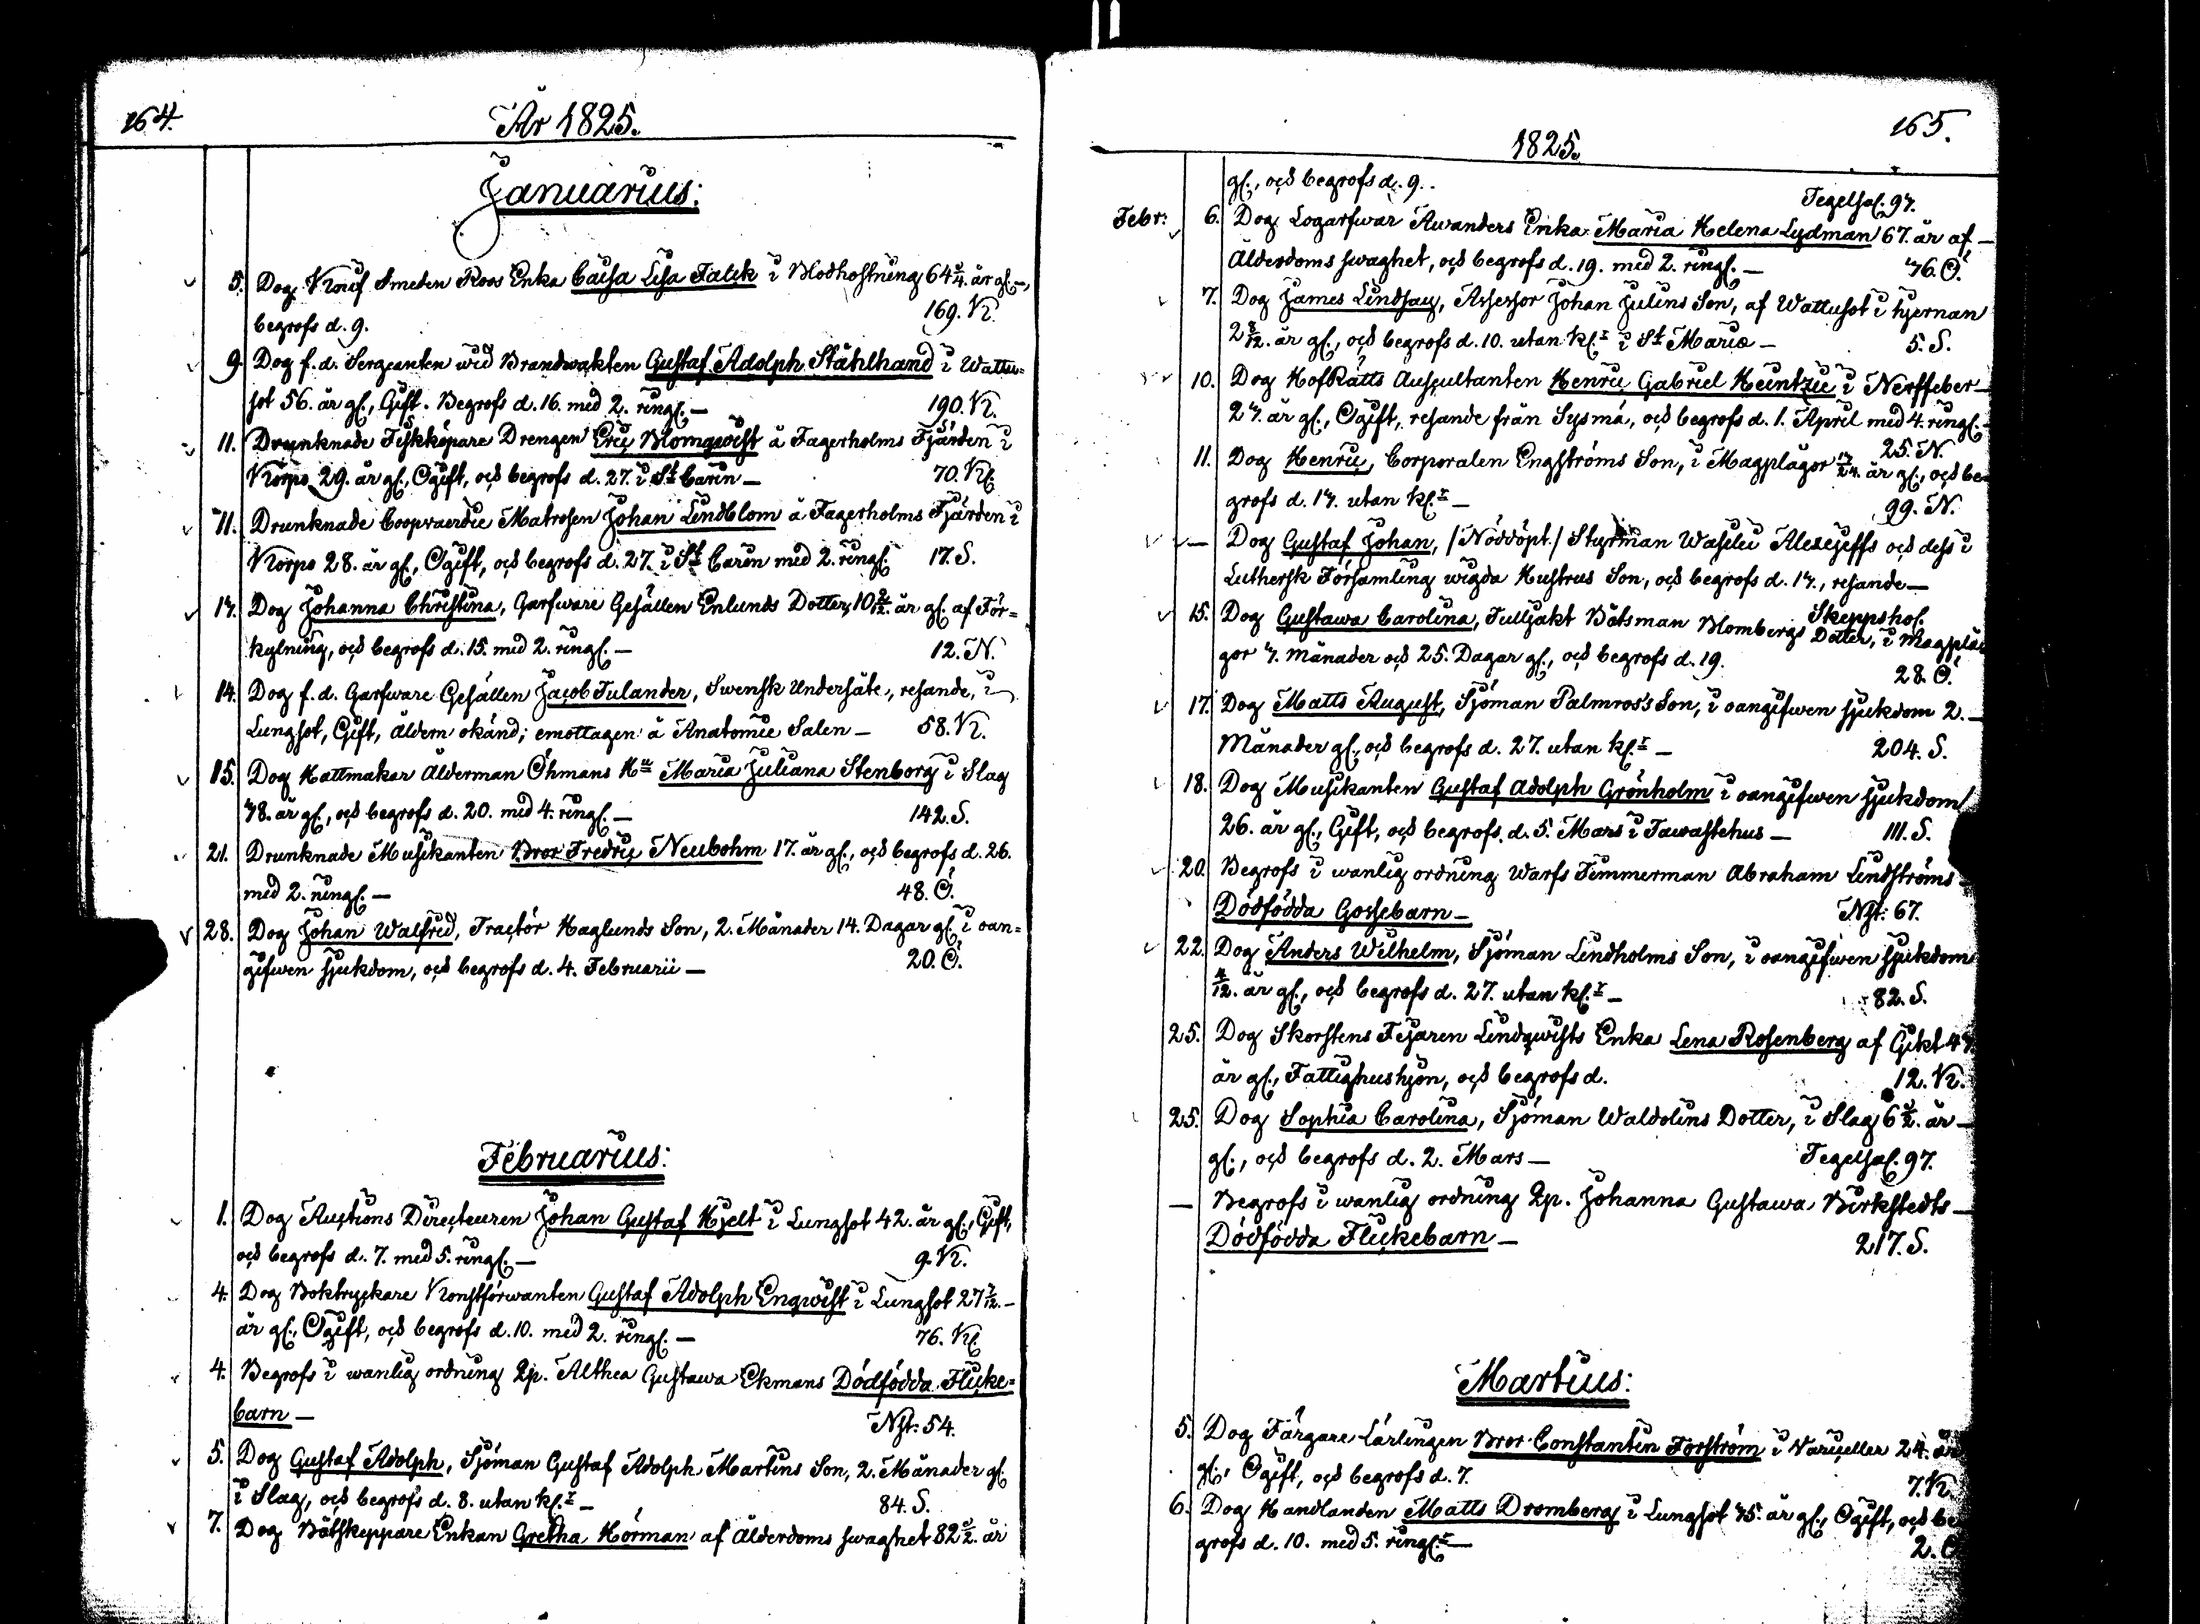 164.
År 1825.
Januarius:
5. Dog Knif Smeden Roos Enka Caisa Lisa Falck i Blodhostning 64 3/4. år gl. –,
begrofs d. 9. 169. K.
9. Dog f. d. Sergeanten wid Brandwakten Gustaf Adolph Stählhand i Wattu=
sot 56. år gl., Gift. Begrofs d. 16. med 2. ringl. – 190. K.
11. Drunknade Fiskköpare Drengen Eric Blomqwist å Fagerholms Fjärden i
Korpo 29. år gl., Ogift, och begrofs d. 27. i St Carin – 70. Kl.
11. Drunknade Coopvaerdie Matrosen Johan Lindblom å Fagerholms Fjärden i
Korpo 28. år gl., Ogift, och begrofs d. 27. i St Carin med 2. ringl. 17. S.
Dog Johanna Christina, Garfware Gesällen Enlunds Dotter, 10 2/12. år gl. af För=
kylning, och begrofs d. 15. med 2. ringl. – 12. N.
14. Dog f. d. Garfware Gesällen Jacob Tulander, Swensk Undersåte, resande, i
Lungsot, Gift, åldern okänd; emottagen å Anatomie Salen – 58. K.
15. Dog Hattmakar Ålderman Öhmans Hu Maria Juliana Stenborg i Slag
78. år gl., och begrofs d. 20. med 4. ringl. – 142. S.
21. Drunknade Musikanten Bror Fredric Neubohm 17. år gl., och begrofs d. 26.
med 2. ringl. – 48. O.
28. Dog Johan Walfrid, Tractör Haglunds Son, 2. Månader 14. Dagar gl. i oan=
gifwen sjukdom, och begrofs d. 4. Februarii – 20. O.
Februarius:
1. Dog Auctions Directeuren Johan Gustaf Hjelt i Lungsot 42. år gl., Gift,
och begrofs d. 7. med 5. ringl. – 9. K.
4. Dog Boktryckare Konstförwanten Gustaf Adolph Engwist i Lungsot 27 7/12. –
år gl., Ogift, och begrofs d. 10. med 2. ringl. – 76. Kl.
4. Begrofs i wanlig ordning Qp. Althea Gustawa Ekmans Dödfödda Flicke=
barn – Nst: 54.
5. Dog Gustaf Adolph, Sjöman Gustaf Adolph Martins Son, 2. Månader gl.
i Slag, och begrofs d. 8. utan kl.r – 84. S.
7. Dog Båtskeppare Enkan Gretha Hörman af ålderdoms swaghet 82 1/2. år
165.
1825.
gl., och begrofs d. 9. Tegelsal. 97.
Febr: 6. Dog Logarfwar Awanders Enka Maria Helena Lydman 67. år af –
Ålderdoms swaghet, och begrofs d. 19. med 2. ringl. – 76. O.
7. Dog James Lindsay, Assessor Johan Julins Son, af Wattusot i hjernan
2 8/12. år gl., och begrofs d. 10. utan kl.r i St Mariæ – 5. S.
10. Dog HofRätts Auscultanten Henric Gabriel Heintzie i Nerffeber –
27. år gl., Ogift, resande från Sysmä, och begrofs d. 1. April med 4. ringl. –
25. N.
11. Dog Henric, Corporalen Engströms Son, i Magplågor 17/24. år gl., och be=
grofs d. 17. utan kl.r – 99. N.
– Dog Gustaf Johan, /Nöddöpt./ Styrman Wasilei Alexejeffs och dess i
Luthersk Församling wigda Hustrus Son, och begrofs d. 17., resande –
Skeppshol.
15. Dog Gustawa Carolina, Tulljakt Båtsman Blombergs Dotter, i Magplå
gor 7. Månader och 25. Dagar gl., och begrofs d. 19. 28. O.
17. Dog Matts August, Sjöman Palmros's Son, i oangifwen sjukdom 2. –
Månader gl., och begrofs d. 27. utan kl.r – 204. S.
18. Dog Musikanten Gustaf Adolph Grönholm i oangifwen sjukdom
26. år gl., Gift, och begrofs d. 5. Mars i Tawastehus – 111. S.
20. Begrofs i wanlig ordning Warfs Timmerman Abraham Lindströms –
Dödfödda Gossebarn – Nst: 67.
22. Dog Anders Wilhelm, Sjöman Lindholms Son, i oangifwen sjukdom
4/12. år gl., och begrofs d. 27. utan kl.r – 82. S.
25. Dog Skorstens Fejaren Lindqwists Enka Lena Rosenberg af Gikt 47.
år gl., Fattighushjon, och begrofs d. 12. K.
25. Dog Sophia Carolina, Sjöman Waldolins Dotter, i Slag 6 1/2. år –
gl., och begrofs d. 2. Mars – Tegelsal. 97.
– Begrofs i wanlig ordning Qp. Johanna Gustawa Birkstedts –
Dödfödda Flickebarn – 217. S.
Martius:
5. Dog Färgare Lärlingen Bror Constantin Forström i Variceller 24. år
gl., Ogift, och begrofs d. 7. 7. K.
6. Dog Handlanden Matts Dromberg i Lungsot 75. år gl., Ogift, och be
grofs d. 10. med 5. ringl.r – 2. O